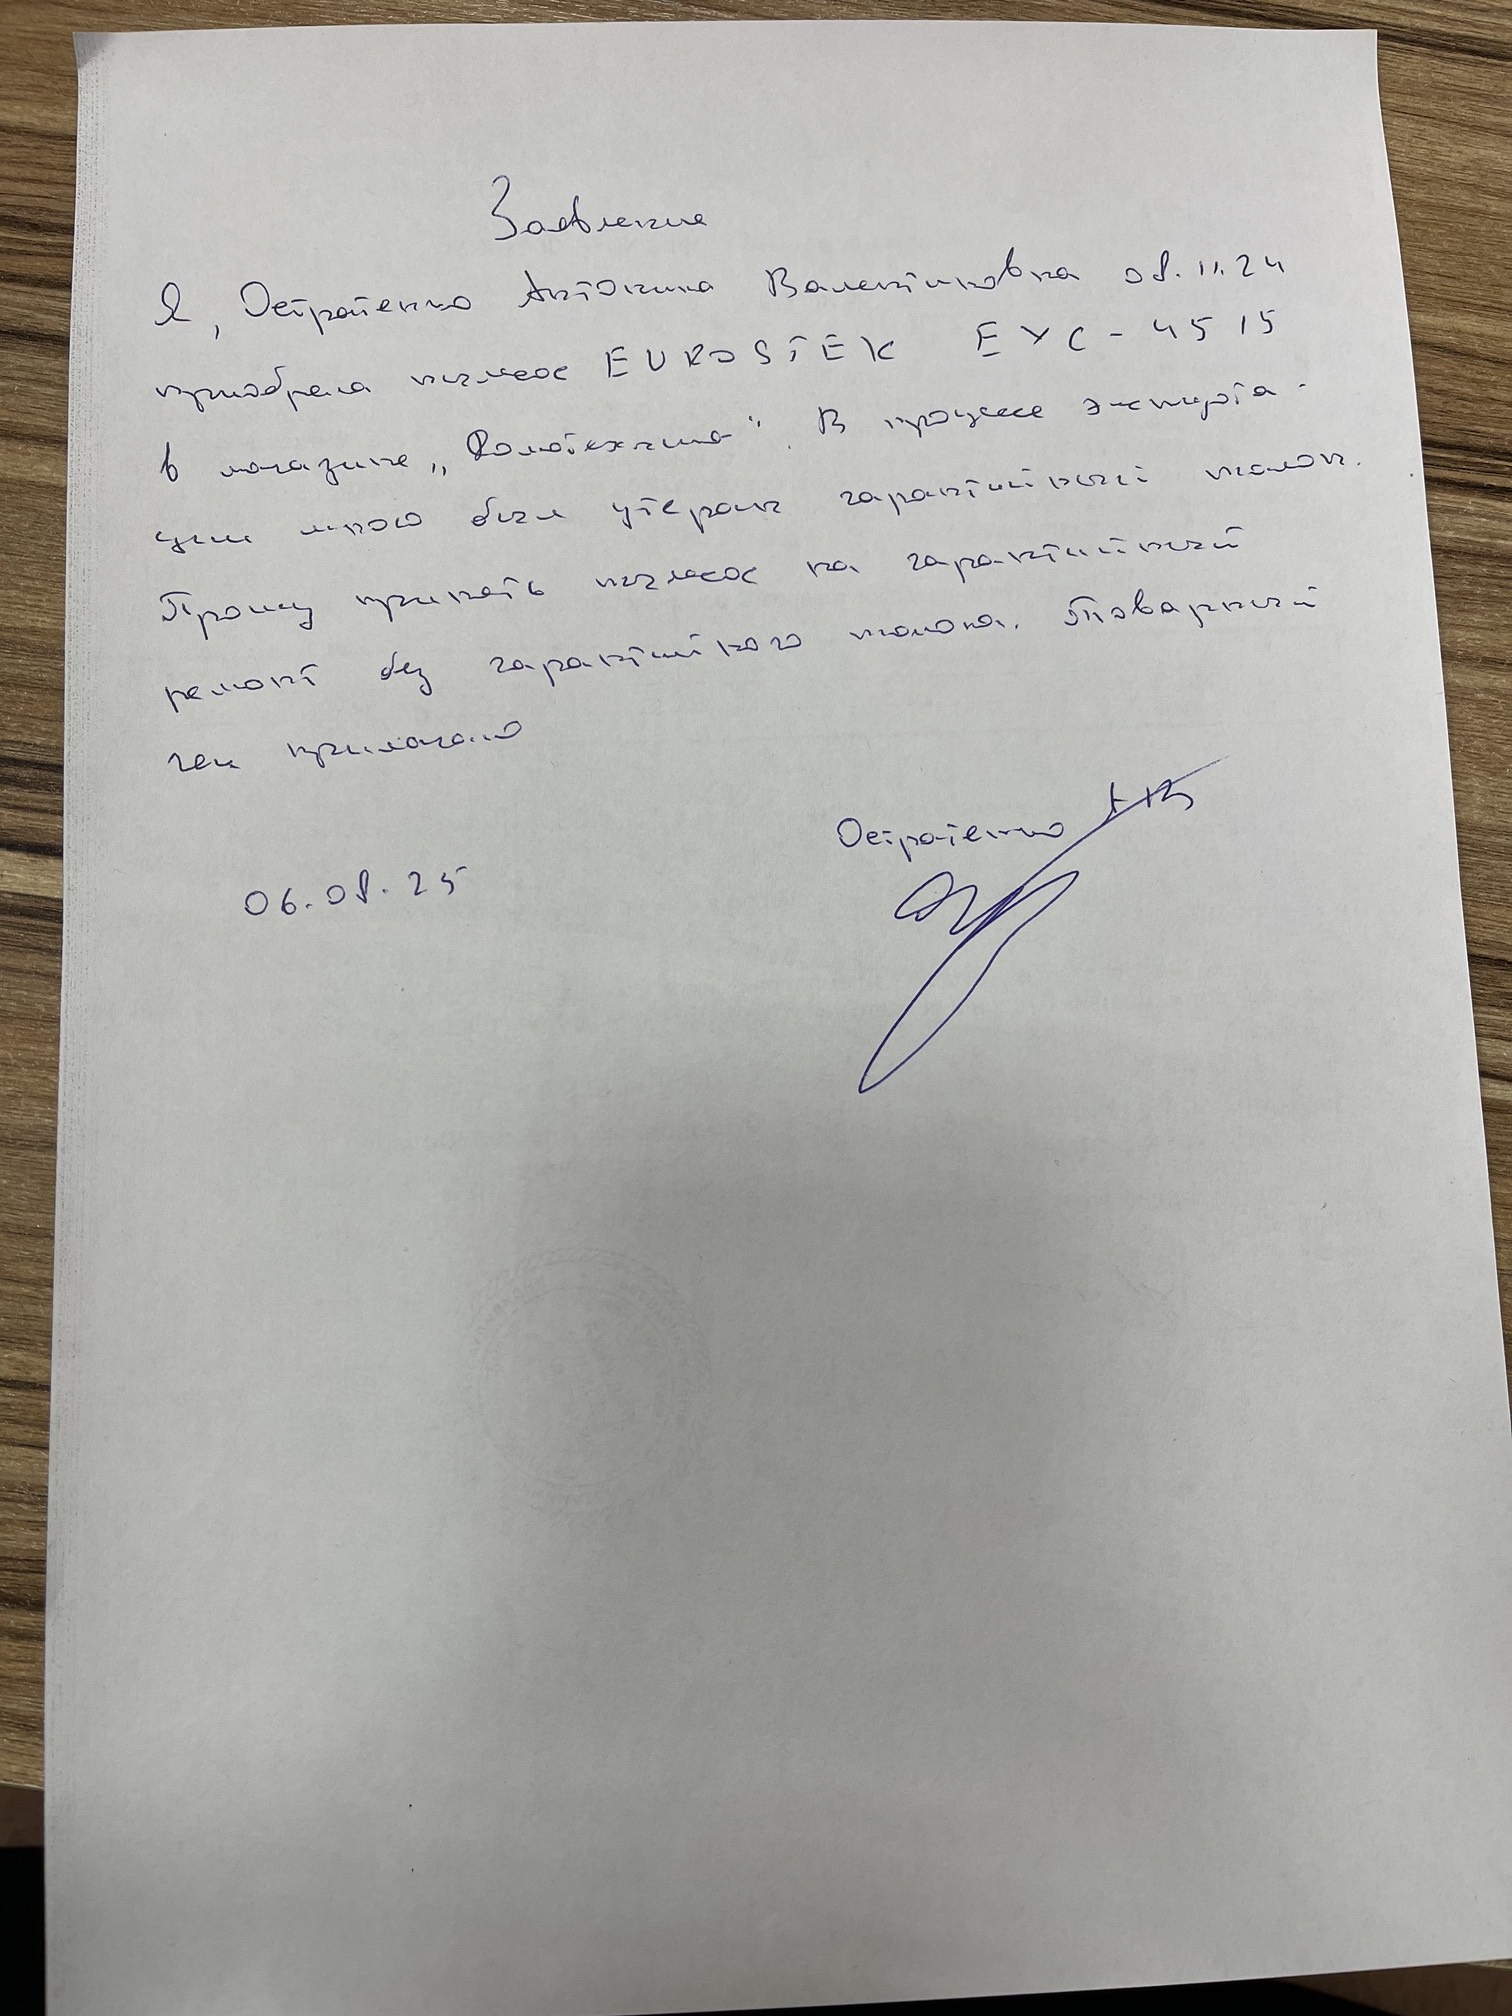 Заявление
Я, Остратенко Антонина Валентиновна 08.11.24
приобрела пылесос EUROSTEK EVC-4515
в магазине „Домотехника". В процессе эксплуата-
ции мною был утерян гарантийный талон.
Прошу принять пылесос на гарантийный
ремонт без гарантийного талона. Товарный
чек прилагаю
Остратенко А В
06.08.25